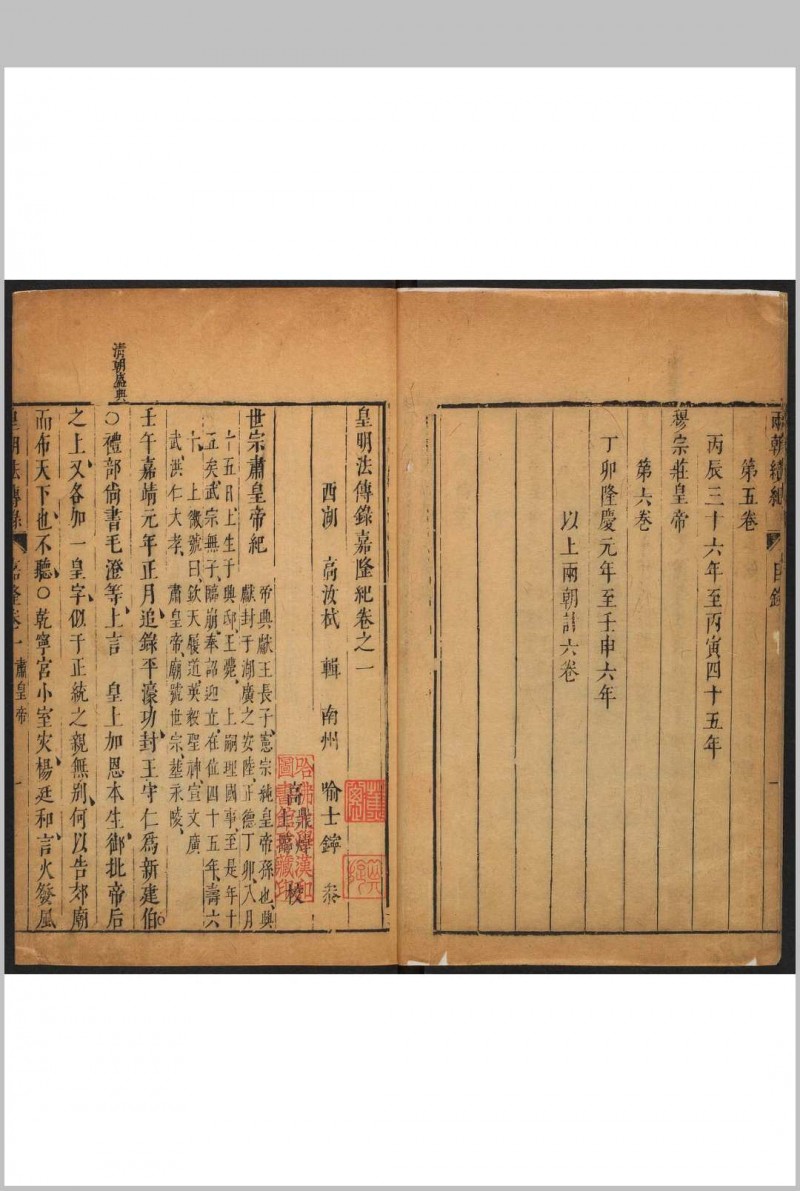 兩朝續紀 目錄
第五卷
丙辰三十六年至丙寅四十五年
穆宗莊皇帝
第六卷
丁卯隆慶元年至壬申六年
以上兩朝計六卷
皇明法傳錄嘉隆紀卷之一
西湖 高汝栻 輯 南州 喻士鋅 叅
高鼎 校
哈佛大學漢和圖書館珍藏印
世宗肅皇帝紀
帝興獻王長子憲宗純皇帝孫也興
獻封于湖廣之安陸正德丁卯八月
十五日上生于興邸王薨 上嗣理國事至是年十
五矣武宗無子臨崩奉詔迎立在位四十五年壽六
十上徽號曰欽天履道英毅聖神宣文廣
武洪仁大孝 肅皇帝廟號世宗塟永陵
壬午嘉靖元年正月追錄平濠功封王守仁爲新建伯
清朝盛典
○禮部尚書毛澄等上言 皇上加恩本生御批帝后
之上又各加一皇字似于正統之親無别何以告郊廟
而布天下也不聽○乾寧宮小室災楊廷和言火發風
皇明法傳錄 嘉隆卷一 肅皇帝 一